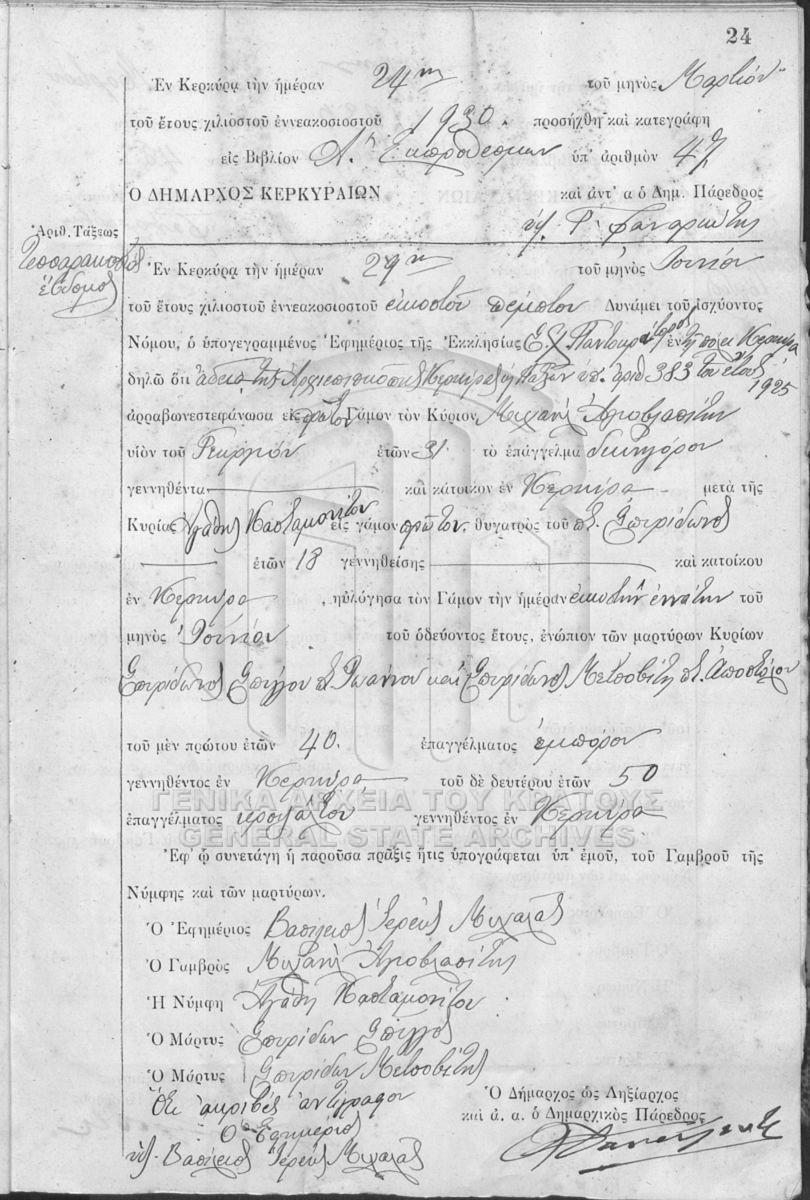 24
Ἐν Κερκύρᾳ τὴν ἡμέραν 24ην τοῦ μηνὸς Μαρτίου
τοῦ ἔτους χιλιοστοῦ ἐννεακοσιοστοῦ 1930. προσήχθη καὶ κατεγράφη
εἰς Βιβλίον Α. Ἐκπροθέσμων ὑπ' ἀριθμὸν 47
Ο ΔΗΜΑΡΧΟΣ ΚΕΡΚΥΡΑΙΩΝ καὶ ἀντ' α ὁ Δημ. Πάρεδρος
Ἀριθ. Τάξεως
Τεσσαρακοστὸς
ἕβδομος
Ἐν Κερκύρᾳ τὴν ἡμέραν 29ην τοῦ μηνὸς Ἰουνίου
τοῦ ἔτους χιλιοστοῦ ἐννεακοσιοστοῦ εἰκοστοῦ πέμπτου Δυνάμει τοῦ ἰσχύοντος
Νόμου, ὁ ὑπογεγραμμένος Ἐφημέριος τῆς Ἐκκλησίας Παντοκράτορος ἐν τῇ πόλει Κερκύρᾳ
δηλῶ ὅτι ἀδείᾳ τῆς Ἀρχιεπισκοπῆς Κερκύρας ὑπ' ἀριθ 383 τοῦ ἔτους 1925
ἀρραβωνεστεφάνωσα εἰς πρῶτον Γάμον τὸν Κύριον Μιχαὴλ Ἁγιοβλασίτην
υἱὸν τοῦ Γεωργίου ἐτῶν 31 τὸ ἐπάγγελμα δικηγόρον
γεννηθέντα καὶ κάτοικον ἐν Κερκύρᾳ μετὰ τῆς
Κυρίας Ἀγάθης Κασταμονίτου εἰς γάμον πρῶτον, θυγατρὸς τοῦ ποτ. Σπυρίδωνος
ἐτῶν 18 γεννηθείσης καὶ κατοίκου
ἐν Κερκύρᾳ, ηὐλόγησα τὸν Γάμον τὴν ἡμέραν εἰκοστὴν ἐννάτην τοῦ
μηνὸς Ἰουνίου τοῦ ὁδεύοντος ἔτους, ἐνώπιον τῶν μαρτύρων Κυρίων
Σπυρίδωνος Σπίγγου ποτ. Ἰωάννου καὶ Σπυρίδωνος Μετσοβίτη ποτ. Ἀποστόλου
τοῦ μὲν πρώτου ἐτῶν 40. ἐπαγγέλματος ἐμπόρου
γεννηθέντος ἐν Κερκύρᾳ τοῦ δὲ δευτέρου ἐτῶν 50
ἐπαγγέλματος ἱεροψάλτου γεννηθέντος ἐν Κερκύρᾳ
ΓΕΝΙΚΑ ΑΡΧΕΙΑ ΤΟΥ ΚΡΑΤΟΥΣ
GENERAL STATE ARCHIVES
Ἐφ' ᾧ συνετάγη ἡ παροῦσα πρᾶξις ἥτις ὑπογράφεται ὑπ' ἐμοῦ, τοῦ Γαμβροῦ τῆς
Νύμφης καὶ τῶν μαρτύρων.
Ὁ Ἐφημέριος Βασίλειος Ἱερεὺς Μιχαλᾶς
Ὁ Γαμβρὸς Μιχαὴλ Ἁγιοβλασίτης
Ἡ Νύμφη Ἀγάθη Κασταμονίτου
Ὁ Μάρτυς Σπυρίδων Σπίγγος
Ὁ Μάρτυς Σπυρίδων Μετσοβίτης
Ὅτι ἀκριβὲς ἀντίγραφον
Ὁ Ἐφημέριος
Βασίλειος Ἱερεὺς Μιχαλᾶς
Ὁ Δήμαρχος ὡς Ληξίαρχος
καὶ ἀ. α. ὁ Δημαρχικὸς Πάρεδρος